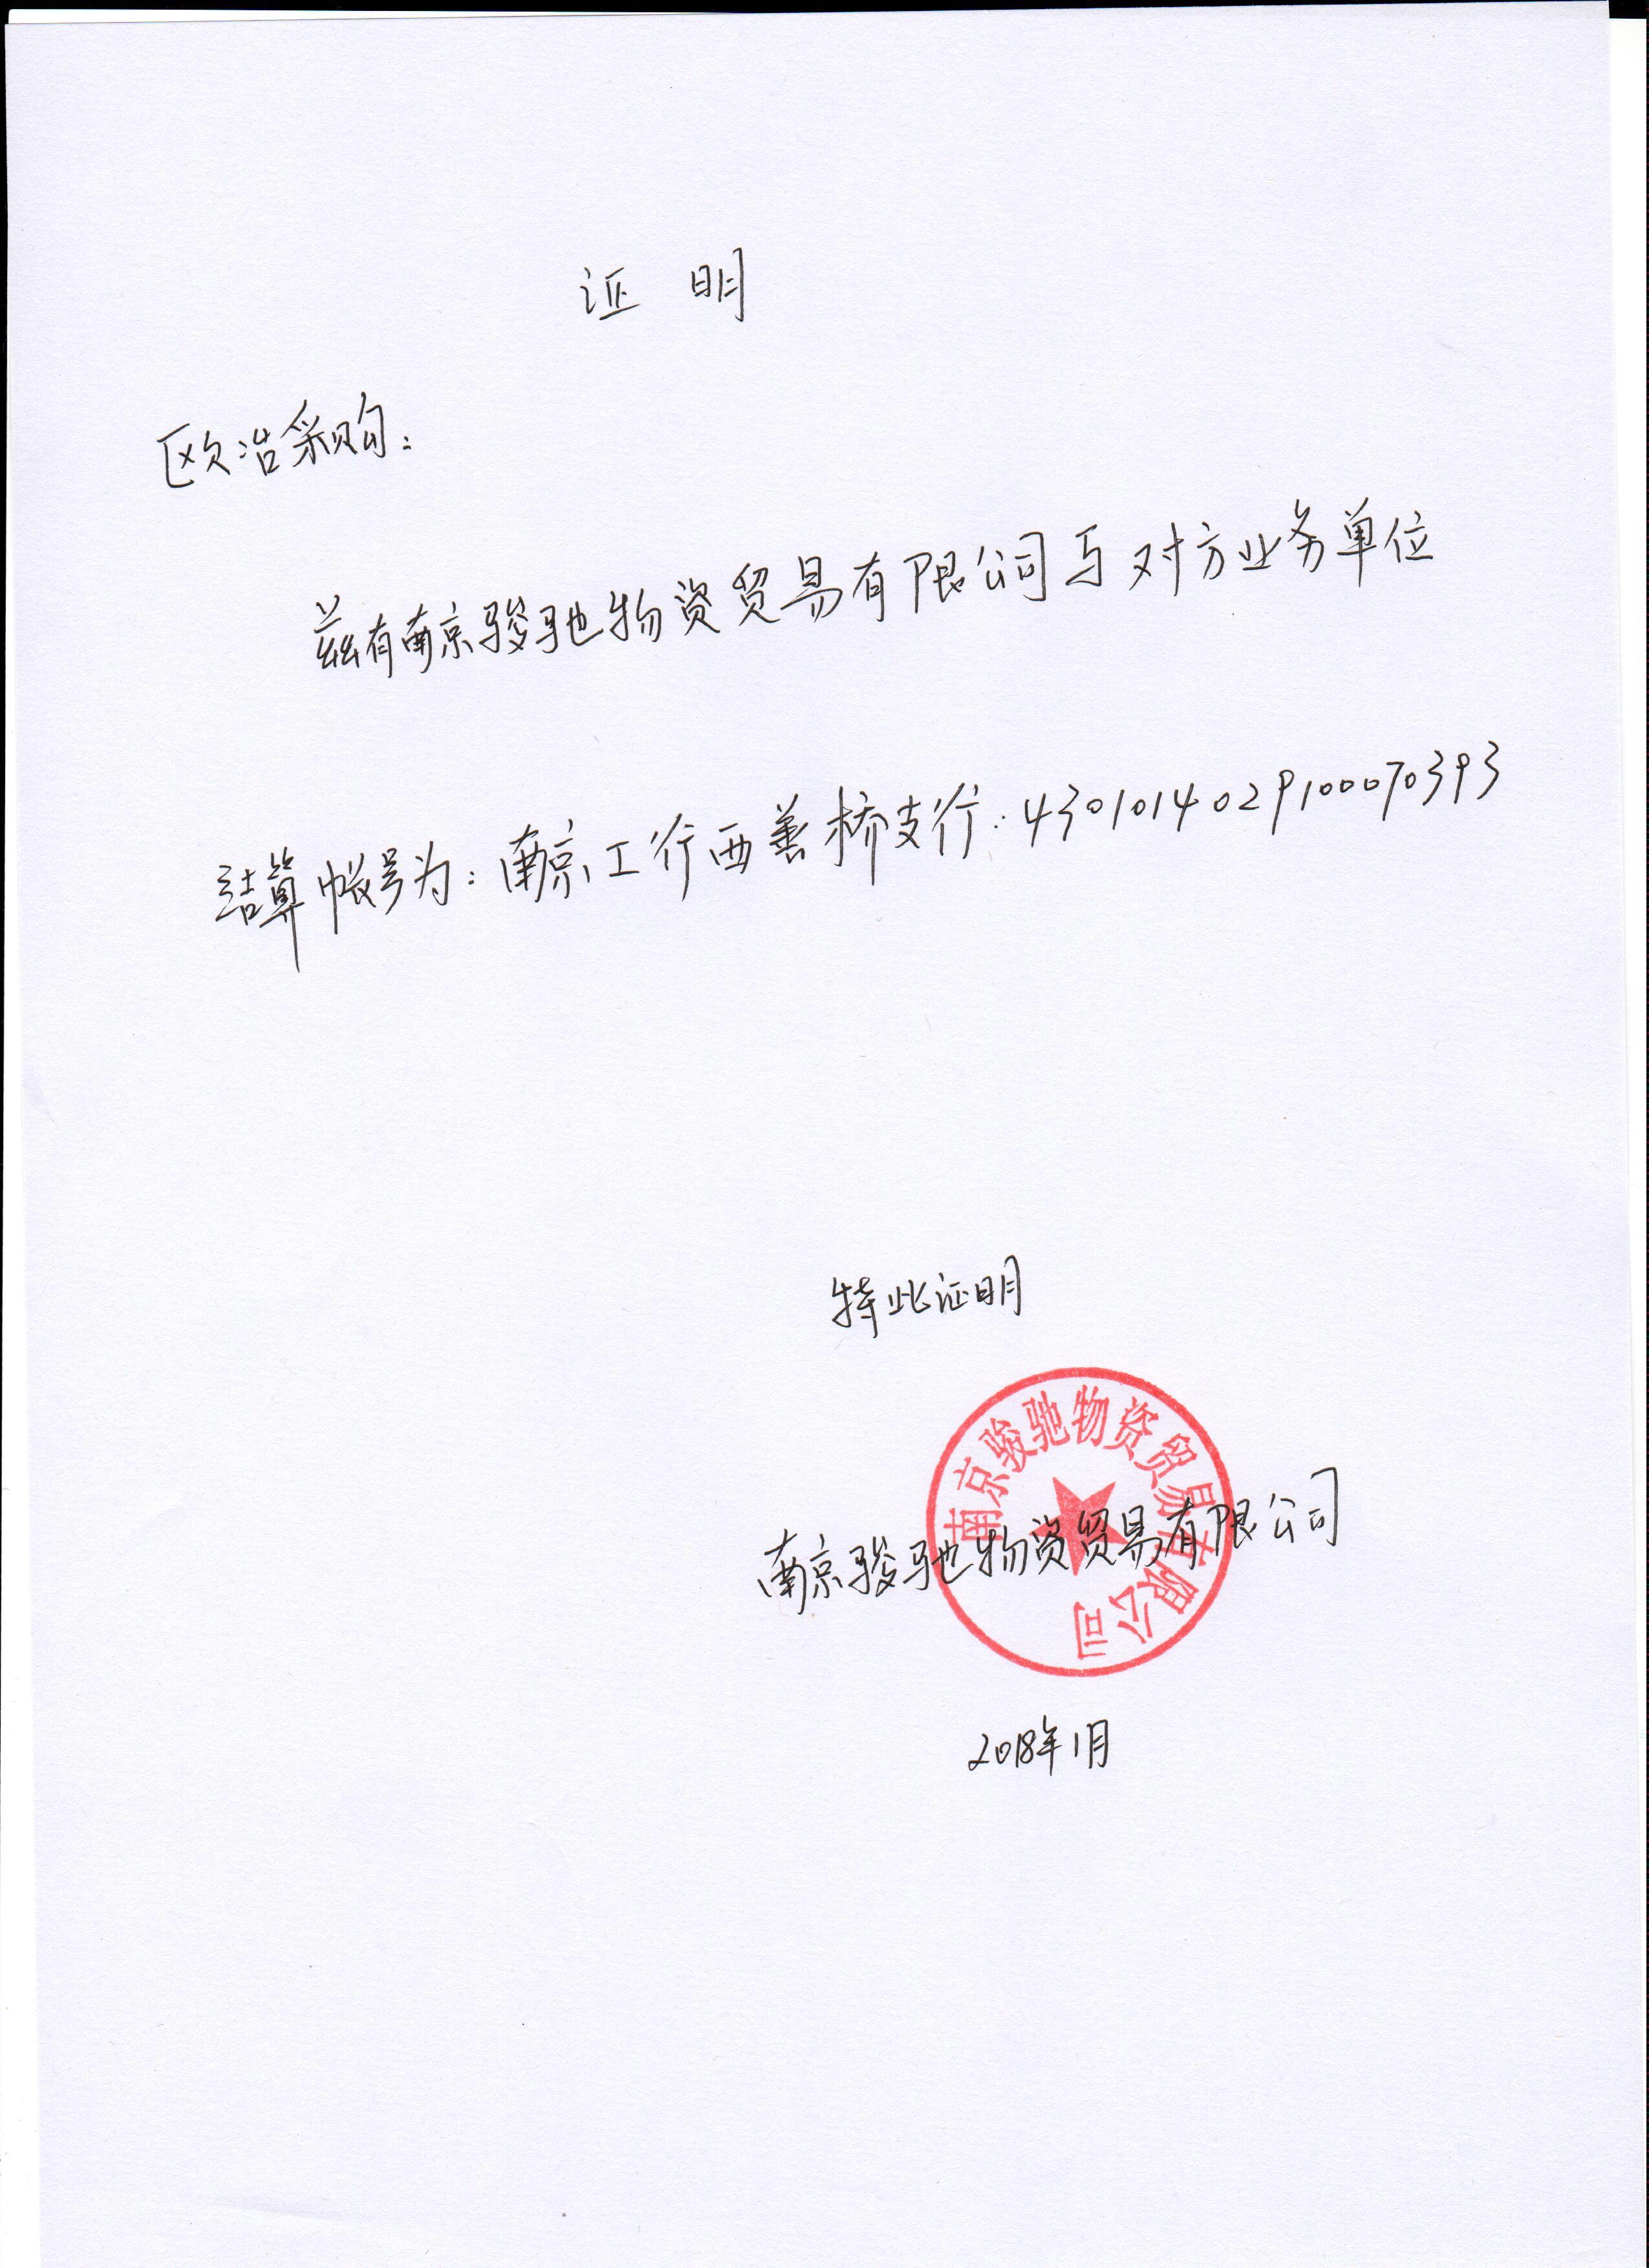 证 明
欧浩采购：
兹有南京骏驰物资贸易有限公司与对方业务单位
结算帐号为：南京工行西善桥支行：4301014029100070393
特此证明
南京骏驰物资贸易有限公司
南京骏驰物资贸易有限公司
2018年1月